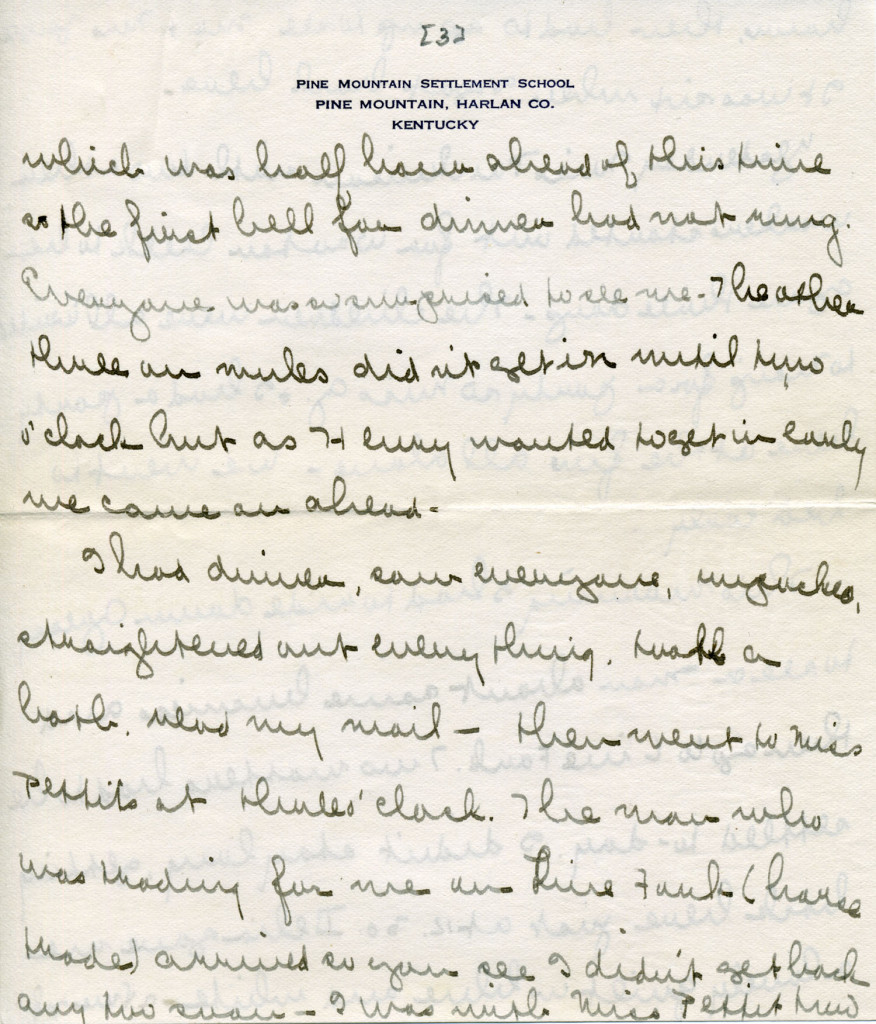 [3]
PINE MOUNTAIN SETTLEMENT SCHOOL
PINE MOUNTAIN, HARLAN CO.
KENTUCKY
which was half hour ahead of this time
so the first bell for dinner had not rung.
Everyone was so surprised to see me. The other
three on mules didn't get in until two
o'clock but as Henry wanted to get in early
we came on ahead.
I had dinner, saw everyone, unpacked,
straightened out every thing, took a
bath, read my mail — then went to Miss
Pettits at three o'clock. The man who
was trading for me on Line Fork (horse
trade) arrived so you see I didn't get back
any too soon — I was with Miss Pettit two